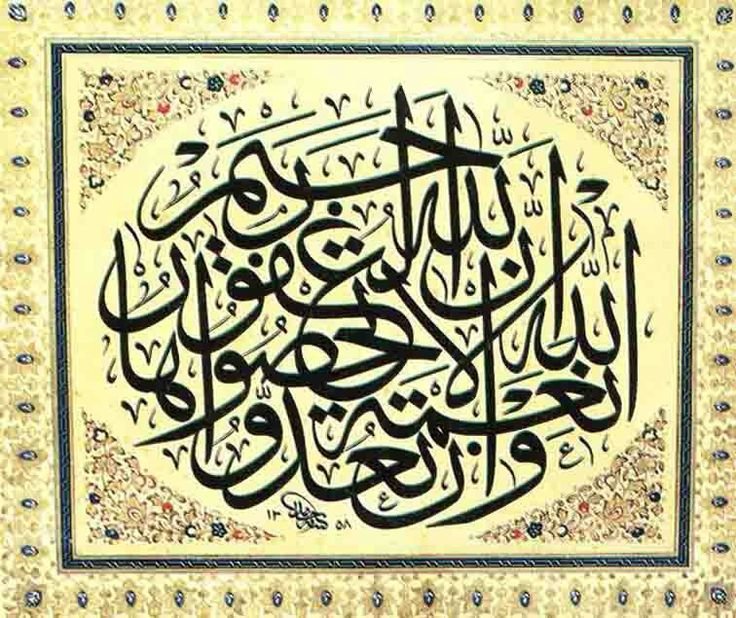 وان تعدوا نعمة الله لا تحصوها ان الله لغفور رحيم
١٣٥٨